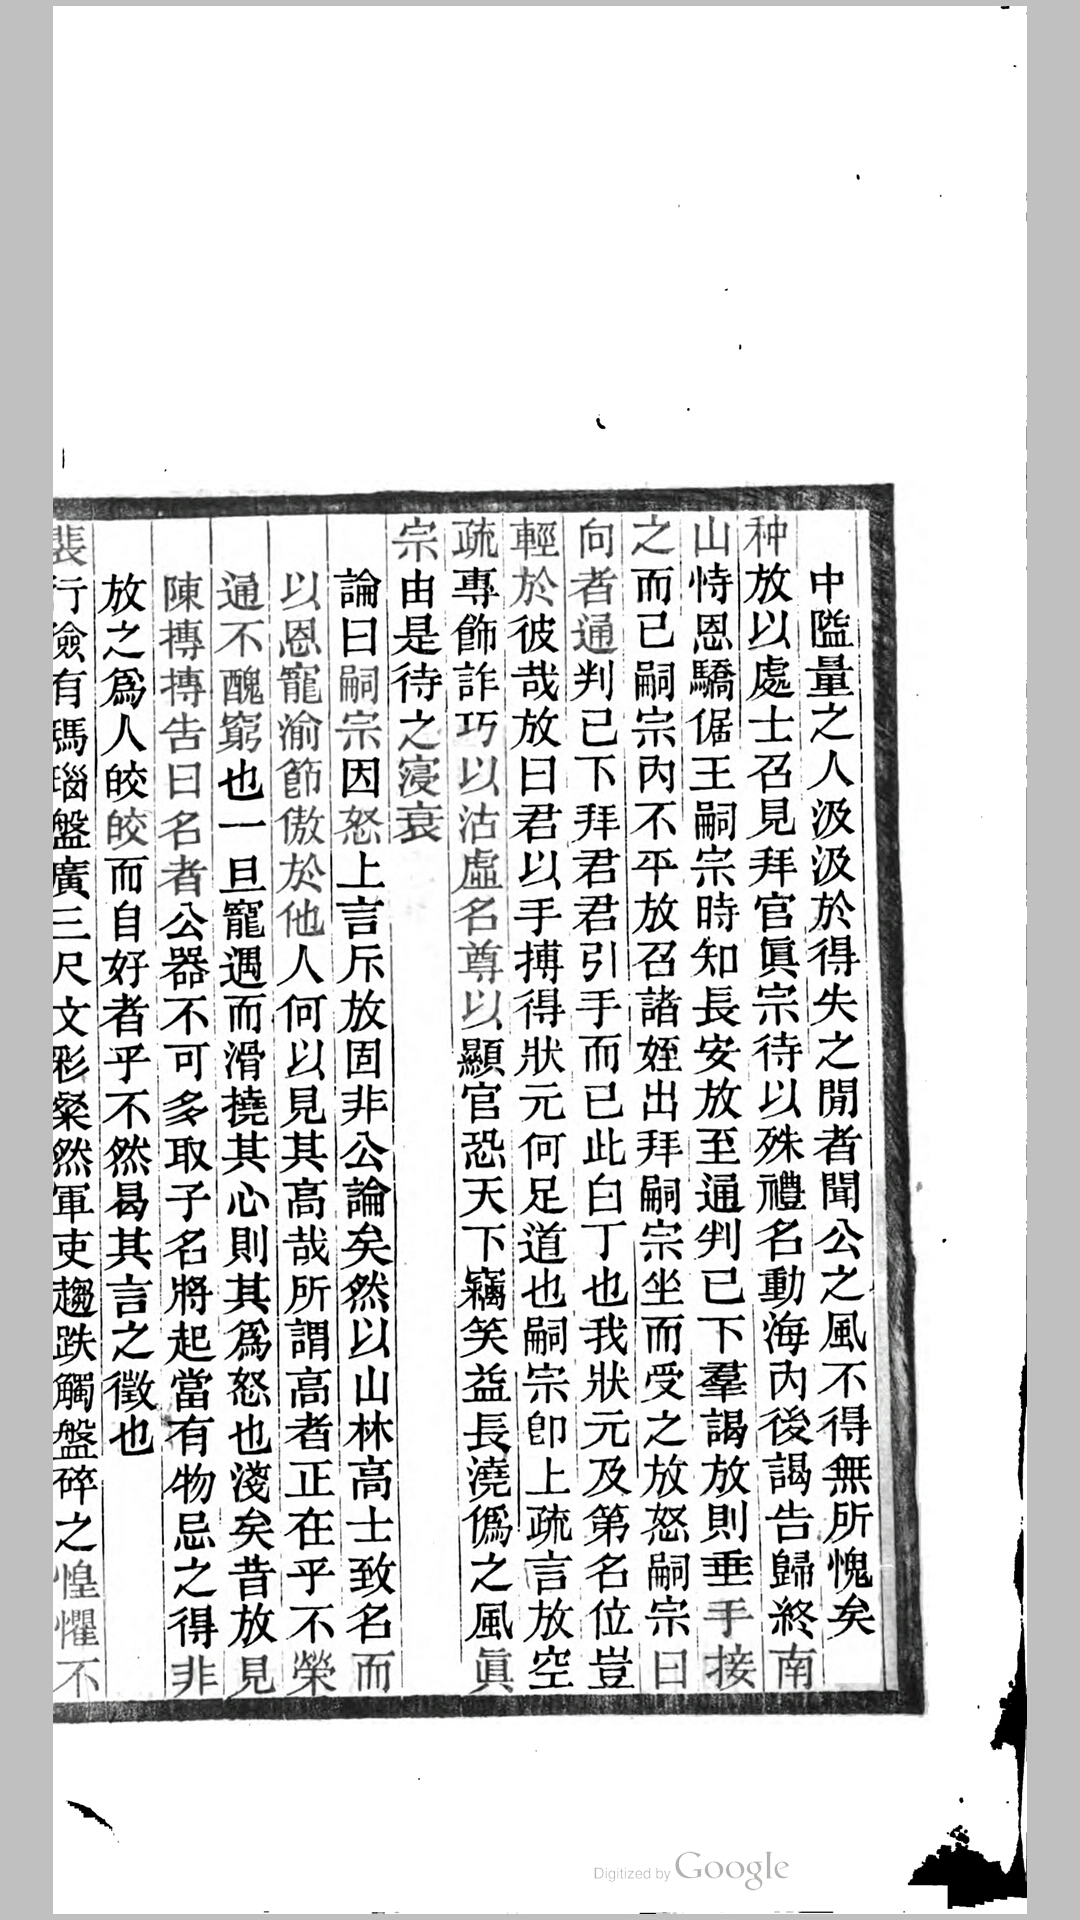 中隘量之人汲汲於得失之閒者聞公之風不得無所愧矣
种放以處士召見拜官眞宗待以殊禮名動海內後謁告歸終南
山恃恩驕倨王嗣宗時知長安放至通判已下羣謁放則垂手接
之而已嗣宗內不平放召諸姪出拜嗣宗坐而受之放怒嗣宗曰
向者通判已下拜君君引手而已此白丁也我狀元及第名位豈
輕於彼哉放曰君以手搏得狀元何足道也嗣宗卽上疏言放空
疏專飾詐巧以沽虛名尊以顯官恐天下竊笑益長澆僞之風眞
宗由是待之寖衰
論曰嗣宗因怒上言斥放固非公論矣然以山林高士致名而
以恩寵渝節傲於他人何以見其高哉所謂高者正在乎不榮
通不醜窮也一旦寵遇而滑撓其心則其爲怒也淺矣昔放見
陳摶摶告曰名者公器不可多取子名將起當有物忌之得非
放之爲人皎皎而自好者乎不然曷其言之徵也
裴行儉有瑪瑙盤廣三尺文彩粲然軍吏趨跌觸盤碎之惶懼不
Digitized by Google